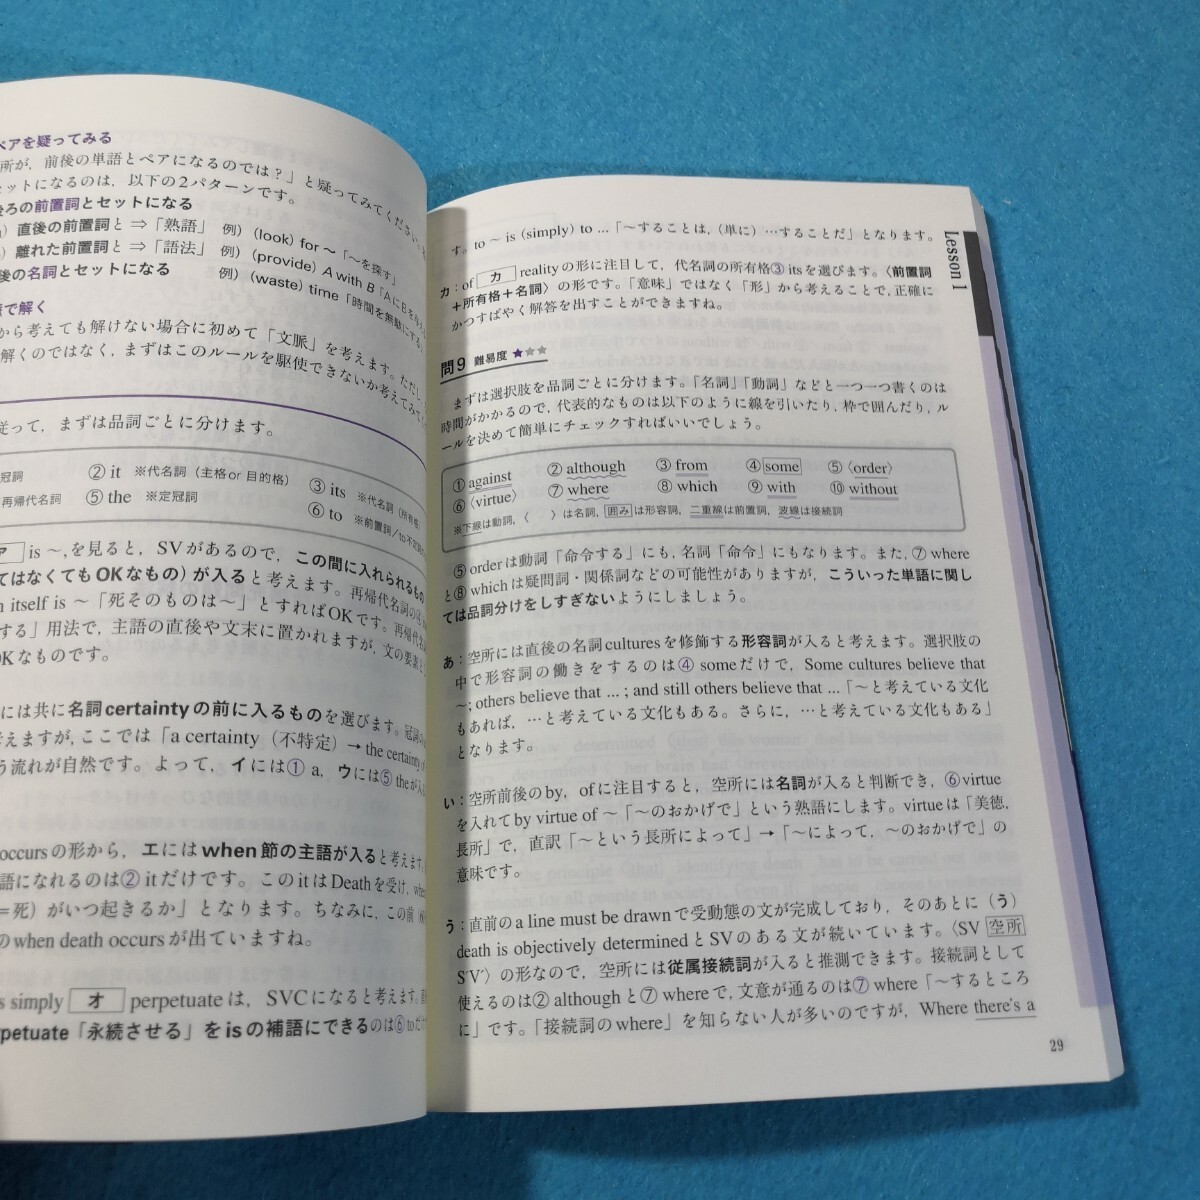 ペアを疑ってみる
所が，前後の単語とペアになるのでは？」と疑ってみてください
セットになるのは，以下の2パターンです。
後ろの前置詞とセットになる
直後の前置詞と⇒「熟語」 例）(look) for ～「～を探す」
離れた前置詞と⇒「語法」 例）(provide) A with B「AにBを与える
後の名詞とセットになる 例）(waste) time「時間を無駄にする」
で解く
から考えても解けない場合に初めて「文脈」を考えます。ただし，
解くのではなく，まずはこのルールを駆使できないか考えてみて
従って，まずは品詞ごとに分けます。
冠詞 ② it ※代名詞（主格or 目的格） ③ its ※代名詞（所有格）
再帰代名詞 ⑤ the ※定冠詞 ⑥ to ※前置詞／to不定詞
ア is ～,を見ると，SVがあるので，この間に入れられるもの
てはなくてもOKなもの）が入ると考えます。再帰代名詞の
itself is ～「死そのものは～」とすればOKです。再帰代名
する」用法で，主語の直後や文末に置かれますが，文の要素
OKなものです。
には共に名詞certaintyの前に入るものを選びます。冠詞
考えますが，ここでは「a certainty（不特定）→ the certainty
う流れが自然です。よって，イには① a，ウには⑤ theが入
occursの形から，エにはwhen節の主語が入ると考えます。
語になれるのは② itだけです。このitはDeathを受け，
＝死）がいつ起きるか」となります。ちなみに，この前
のwhen death occursが出ていますね。
s simply オ perpetuateは，SVCになると考えます。
perpetuate「永続させる」をisの補語にできるのは⑥ toだけ
す。to ～ is (simply) to ...「～することは,（単に）…することだ」となります。
カ：of カ realityの形に注目して，代名詞の所有格③ itsを選びます。〈前置詞
＋所有格＋名詞〉の形です。「意味」ではなく「形」から考えることで，正確に
かつすばやく解答を出すことができますね。
問9 難易度 ★★★
まずは選択肢を品詞ごとに分けます。「名詞」「動詞」などと一つ一つ書くのは
時間がかかるので，代表的なものは以下のように線を引いたり，枠で囲んだり，ル
ールを決めて簡単にチェックすればいいでしょう。
① against ② although ③ from ④ some ⑤〈order〉
⑥〈virtue〉 ⑦ where ⑧ which ⑨ with ⑩ without
※下線は動詞，〈　〉は名詞，囲みは形容詞，二重線は前置詞，波線は接続詞
⑤ orderは動詞「命令する」にも，名詞「命令」にもなります。また，⑦ where
と⑧ whichは疑問詞・関係詞などの可能性がありますが，こういった単語に関し
ては品詞分けをしすぎないようにしましょう。
あ：空所には直後の名詞culturesを修飾する形容詞が入ると考えます。選択肢の
中で形容詞の働きをするのは④ someだけで，Some cultures believe that
～; others believe that ... ; and still others believe that ...「～と考えている文化
もあれば，…と考えている文化もある。さらに，…と考えている文化もある」
となります。
い：空所前後のby，ofに注目すると，空所には名詞が入ると判断でき，⑥ virtue
を入れてby virtue of ～「～のおかげで」という熟語にします。virtueは「美徳，
長所」で，直訳「～という長所によって」→「～によって，～のおかげで」の
意味です。
う：直前のa line must be drawnで受動態の文が完成しており，そのあとに（う）
death is objectively determinedとSVのある文が続いています。〈SV 空所
S'V'〉の形なので，空所には従属接続詞が入ると推測できます。接続詞として
使えるのは② althoughと⑦ whereで，文意が通るのは⑦ where「～するところ
に」です。「接続詞のwhere」を知らない人が多いのですが，Where there's a
Lesson 1
29